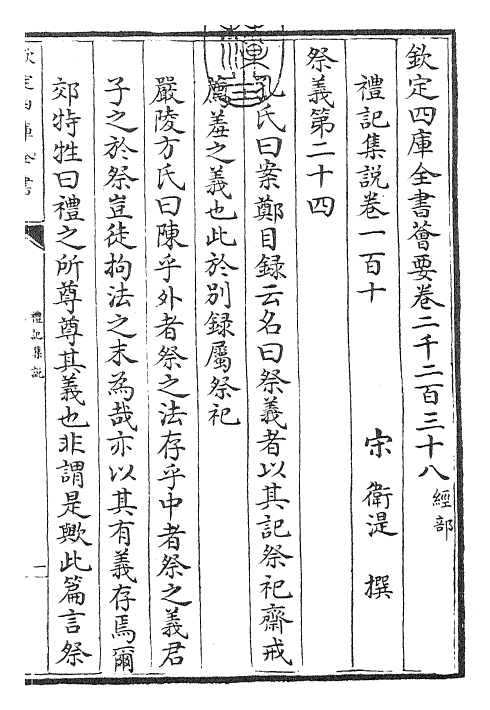 欽定四庫全書薈要卷二千二百三十八經部
禮記集說卷一百十
宋 衛湜 撰
祭義第二十四
孔氏曰案鄭目録云名曰祭義者以其記祭祀齋戒
薦羞之義也此於別録屬祭祀
嚴陵方氏曰陳乎外者祭之法存乎中者祭之義君
子之於祭豈徒拘法之末為哉亦以其有義存焉爾
郊特牲曰禮之所尊尊其義也非謂是歟此篇言祭
欽定四庫全書
禮記集說
一